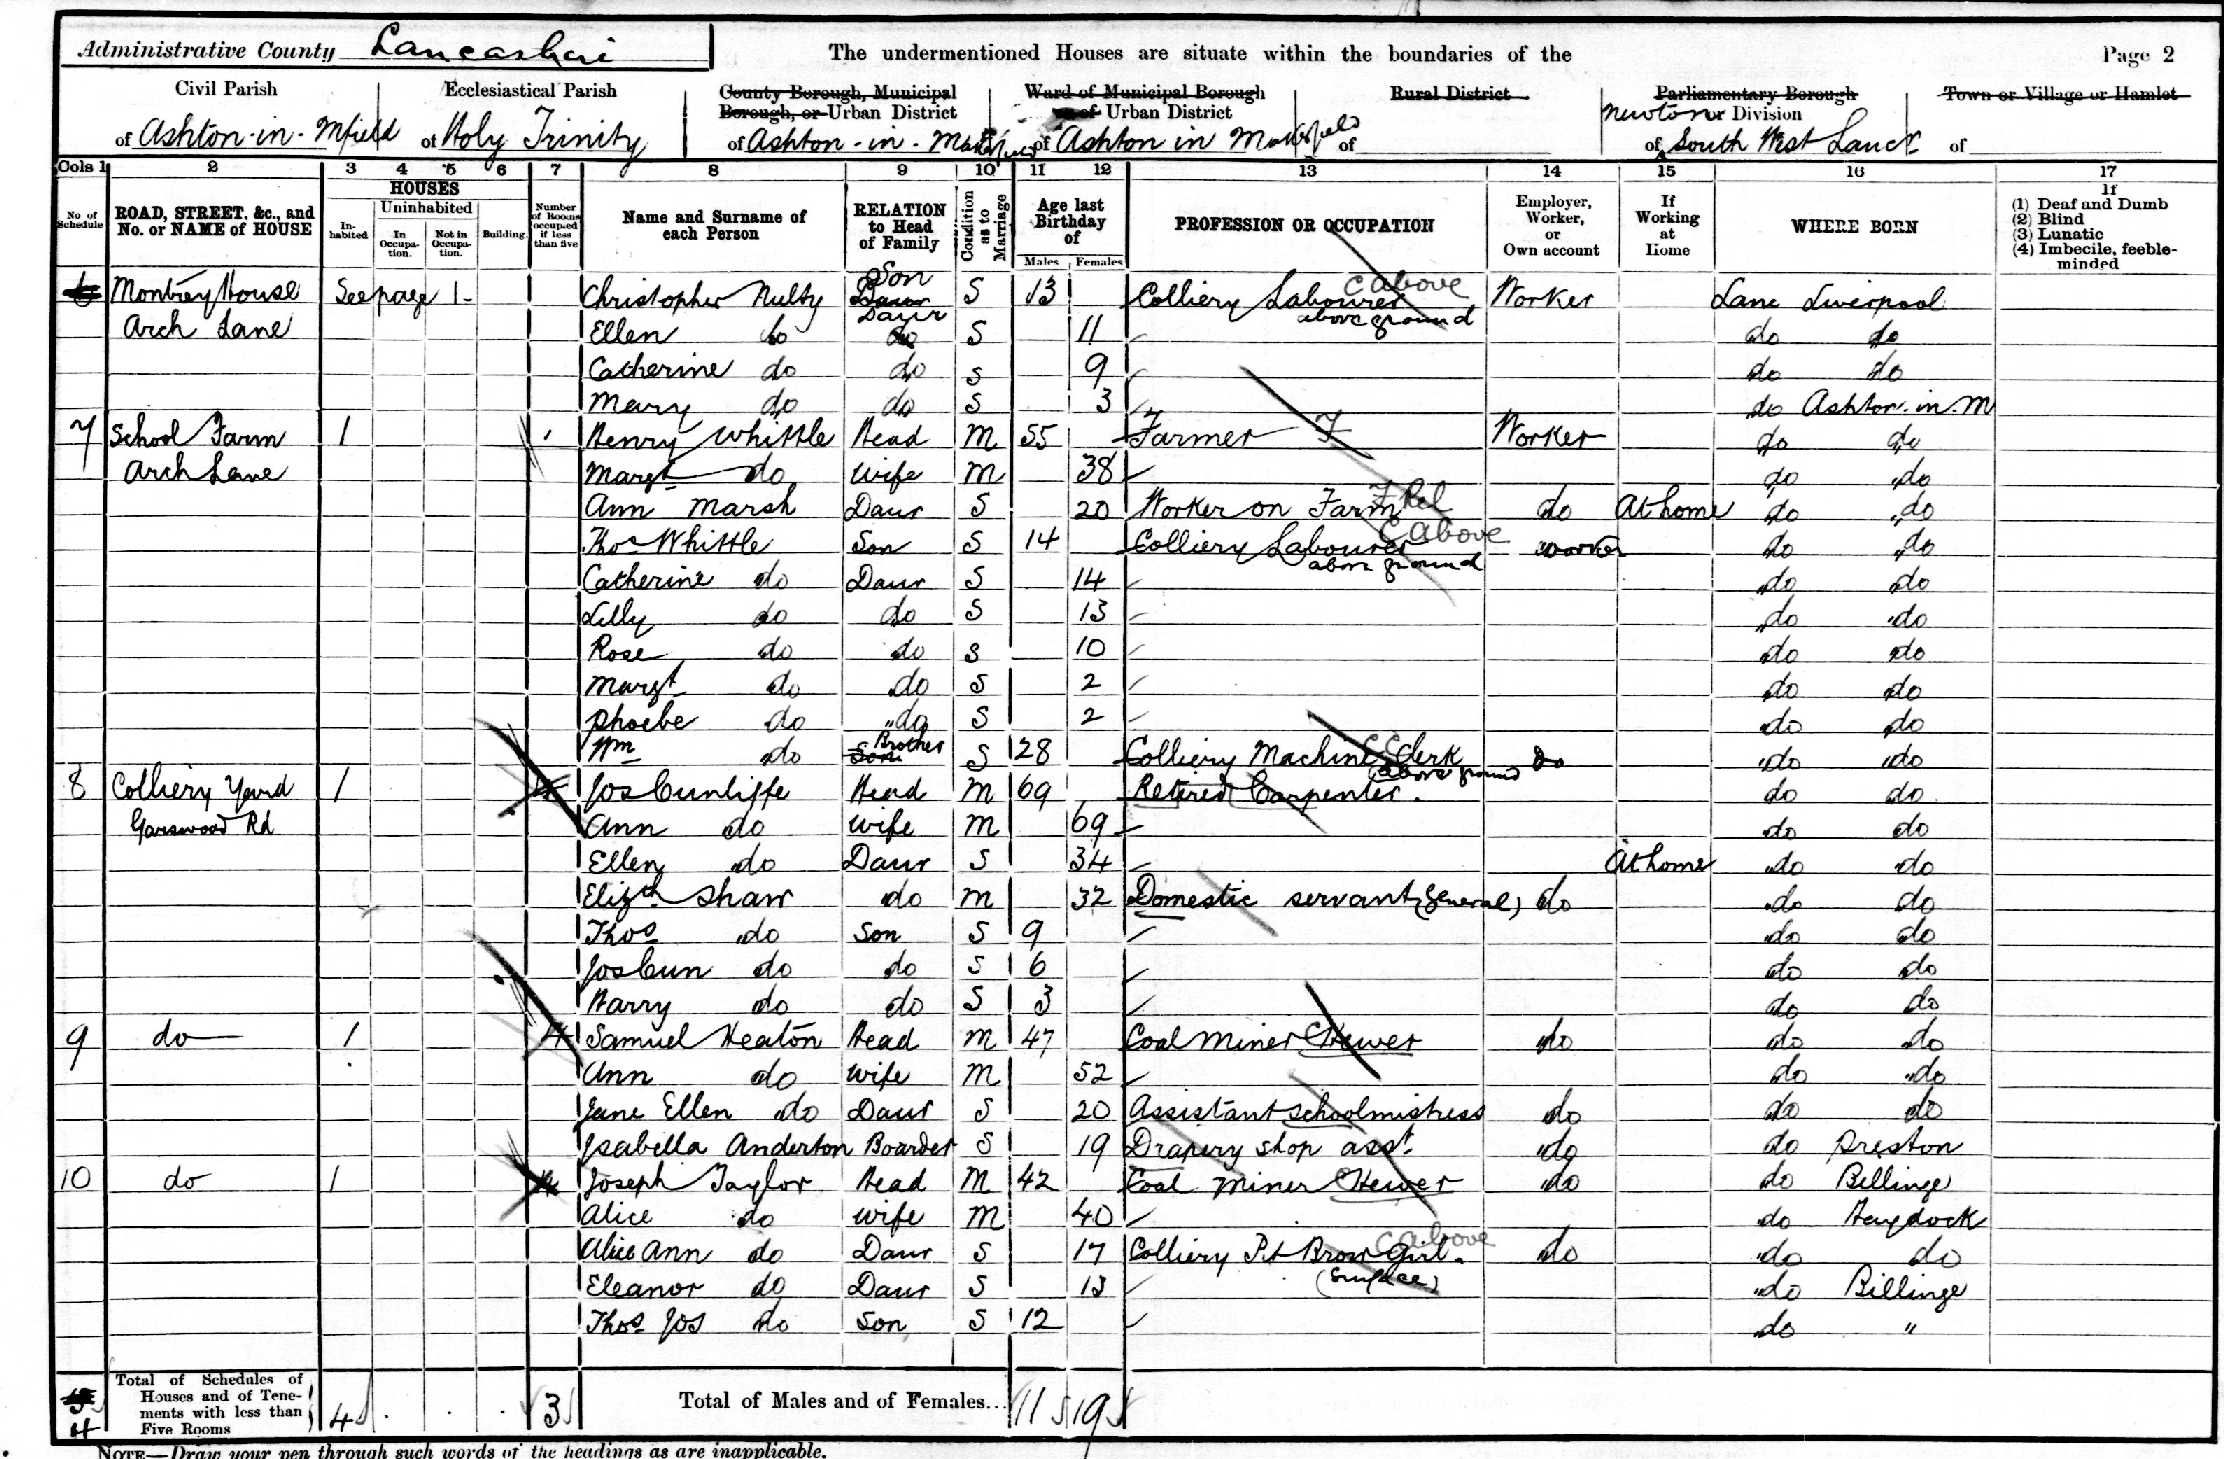 Administrative County Lancashire The undermentioned Houses are situate within the boundaries of the Page 2
Civil Parish Ecclesiastical Parish County Borough, Municipal Borough, or Urban District Ward of Municipal Borough or of Urban District Rural District Parliamentary Borough or Division Town or Village or Hamlet
of Ashton-in-Mfield of Holy Trinity of Ashton-in-Makerfield of Ashton in Makerfield of Newton of South West Lancs of
Cols 1 2 3 4 5 6 7 8 9 10 11 12 13 14 15 16 17
No of Schedule ROAD, STREET, &c., and No. or NAME of HOUSE HOUSES Inhabited Uninhabited In Occupation. Not in Occupation. Building. Number of Rooms occupied if less than five Name and Surname of each Person RELATION to Head of Family Condition as to Marriage Age last Birthday of Males Females PROFESSION OR OCCUPATION Employer, Worker, or Own account If Working at Home WHERE BORN If (1) Deaf and Dumb (2) Blind (3) Lunatic (4) Imbecile, feeble-minded
6 House See page 1 Christopher Nulty Son Daur S 13 Colliery Labourer above ground C above Worker Lanc Liverpool
Arch Lane Ellen do Daur do S 11 do do
Catherine do do S 9 do do
Mary do do S 3 do Ashton-in-M
7 School Farm 1 Henry Whittle Head M 55 Farmer F Worker do do
Arch Lane Margt do Wife M 38 do do
Ann Marsh Daur S 20 Worker on Farm F Rel do At home do do
Thos Whittle Son S 14 Colliery Labourer above ground C above worker do do
Catherine do Daur S 14 do do
Lilly do do S 13 do do
Rose do do S 10 do do
Margt do do S 2 do do
Phoebe do do S 2 do do
Wm do Son Brother S 28 Colliery Machine Clerk (above ground do do do
8 Colliery Yard 1 4 Jos Cunliffe Head M 69 Retired Carpenter. do do
Garswood Rd Ann do Wife M 69 do do
Ellen do Daur S 34 At home do do
Elizth Shaw do M 32 Domestic servant (General) do do do
Thos do Son S 9 do do
Jos Cun do do S 6 do do
Harry do do S 3 do do
9 do 1 4 Samuel Heaton Head M 47 Coal Miner Hewer do do do
Ann do Wife M 52 do do
Jane Ellen do Daur S 20 Assistant schoolmistress do do do
Isabella Anderton Boarder S 19 Drapery shop asst. do do Preston
10 do 1 4 Joseph Taylor Head M 42 Coal Miner Hewer do do Billinge
Alice do Wife M 40 do Haydock
Alice Ann do Daur S 17 Colliery Pit Brow Girl. (Surface) C above do do do
Eleanor do Daur S 13 do Billinge
Thos Jos do Son S 12 do "
4 Total of Schedules of Houses and of Tenements with less than Five Rooms 4 3 Total of Males and of Females... 11 19
NOTE—Draw your pen through such words of the headings as are inapplicable.